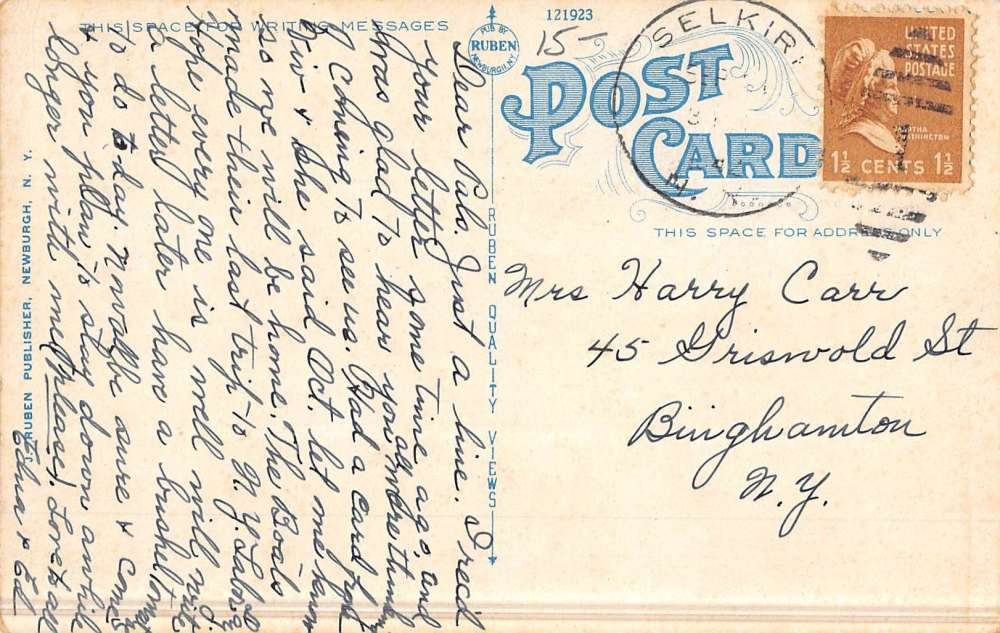 THIS SPACE FOR WRITING MESSAGES
121923
PUB BY
RUBEN
NEWBURGH, N.Y.
15-
SELKIRK
N.
POST
CARD
UNITED
STATES
POSTAGE
MARTHA
WASHINGTON
1½ CENTS 1½
THIS SPACE FOR ADDRESS ONLY
Mrs Harry Carr
45 Griswold St
Binghamton
N.Y.
RUBEN QUALITY VIEWS
J. RUBEN PUBLISHER, NEWBURGH, N. Y.
Dear Pals. Just a line. I recd
your letter some time ago, and
was glad to hear you all were thinking
of Comeing to see us. Had a card from
Driv & she said Oct. let me know
so we will be home. The Boats
made their last trip to N.Y. Labor
hope every one is well will write
a letter later have a bushel
to do to-day. Now all be sure & come
& you plan to stay down awhile
longer with me (Please). Love to all
Edna & Ed